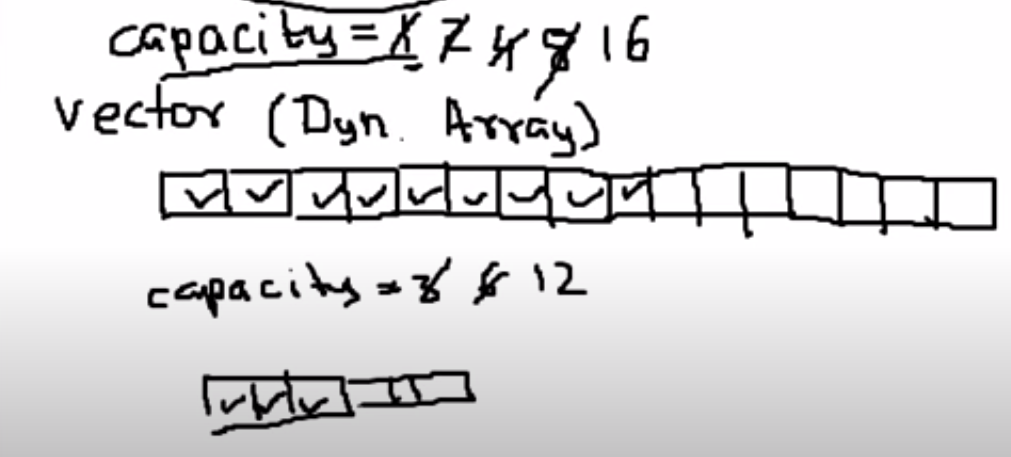 capacity = 1 2 4 8 16
vector (Dyn. Array)
capacity = 3 6 12